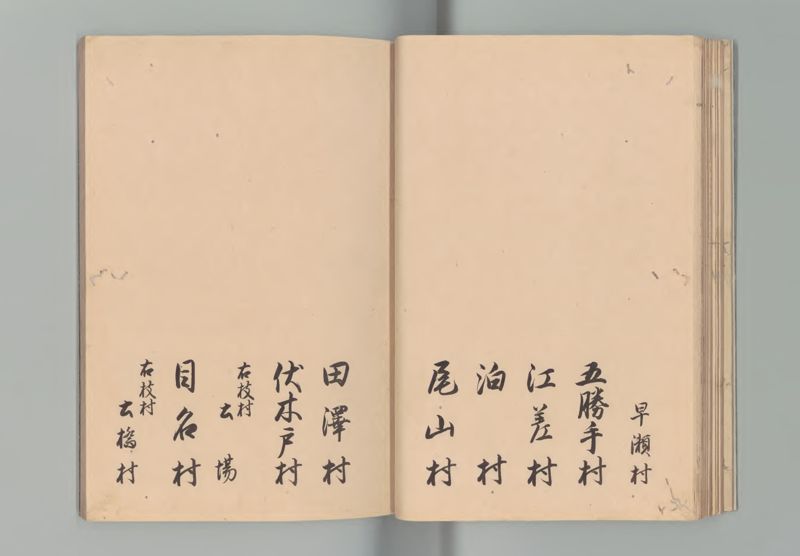 早瀬村
五勝手村
江差村
泊村
尾山村
田澤村
伏木戸村
右枝村
土場
目名村
右枝村
土橋村